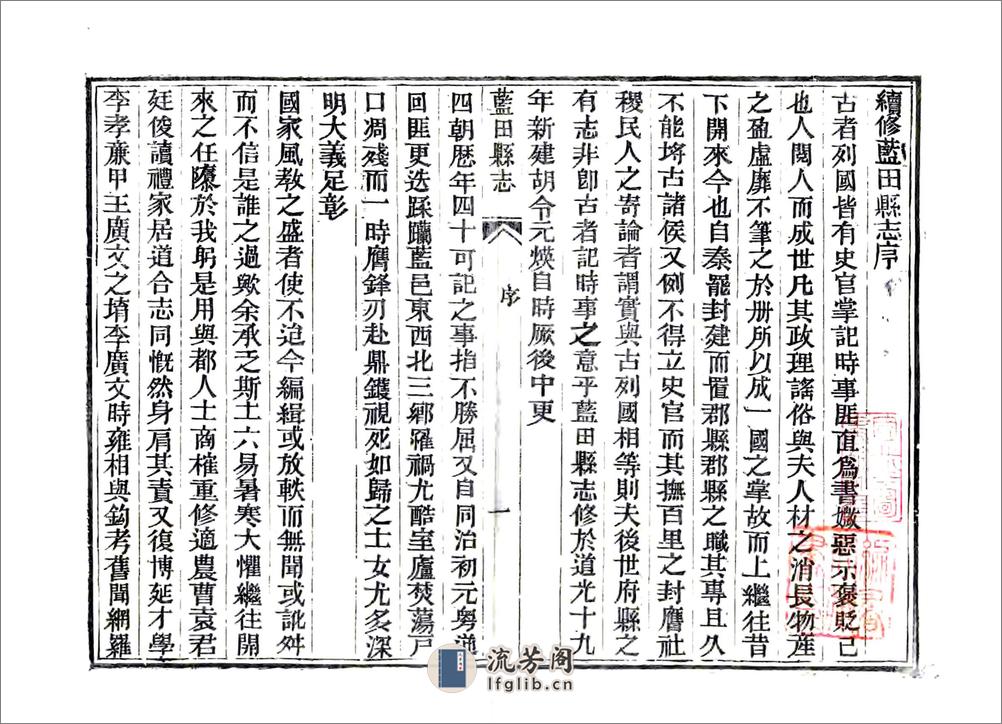 續修藍田縣志序
古者列國皆有史官掌記時事匪直爲書媺惡示褒貶已
也人閱人而成世凡其政理謠俗與夫人材之消長物産
之盈虛靡不筆之於册所以成一國之掌故而上繼往昔
下開來今也自秦罷封建而置郡縣郡縣之職其專且久
不能埒古諸侯又例不得立史官而其撫百里之封膺社
稷民人之寄論者謂實與古列國相等則夫後世府縣之
有志非卽古者記時事之意乎藍田縣志修於道光十九
年新建胡令元煐自時厥後中更
藍田縣志
序
一
四朝歷年四十可記之事指不勝屈又自同治初元粤逆
回匪更迭蹂躪藍邑東西北三鄉罹禍尤酷室廬焚蕩戸
口凋殘而一時膺鋒刃赴鼎鑊視死如歸之士女尤多深
明大義足彰
國家風敎之盛者使不迨今編緝或放軼而無聞或訛舛
而不信是誰之過歟余承乏斯土六易暑寒大懼繼往開
來之任隳於我躬是用與都人士商榷重修適農曹袁君
廷俊讀禮家居道合志同慨然身肩其責又復博延才學
李孝亷甲王廣文之堉李廣文時雍相與鈎考舊聞網羅
流芳阁
lfglib.cn